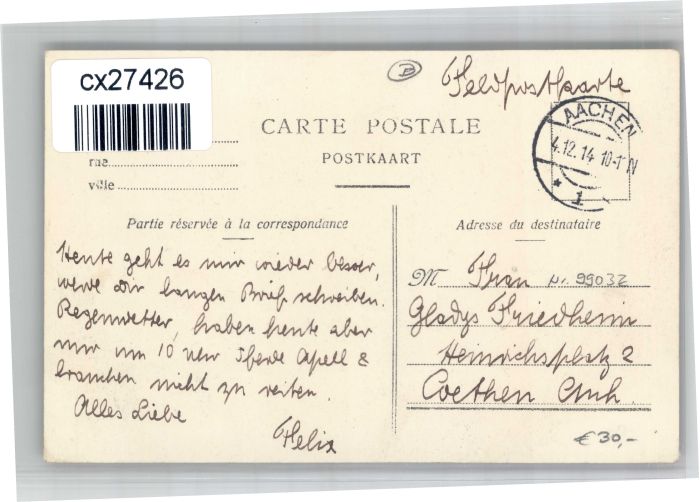 cx27426
B
Feldpostkarte
CARTE POSTALE
POSTKAART
AACHEN
4.12.14 10-11 N
* 1
rue
ville
Partie réservée à la correspondance
Adresse du destinataire
Heute geht es mir wieder besser,
werde Dir langen Brief schreiben.
Regenwetter, haben heute aber
nur um 10 Uhr Pferde Apell &
brauchen nicht zu reiten.
Alles Liebe
Felix
M Frau Nr. 99032
Gladys Friedheim
Heinrichsplatz 2
Coethen Anh.
€ 30,-